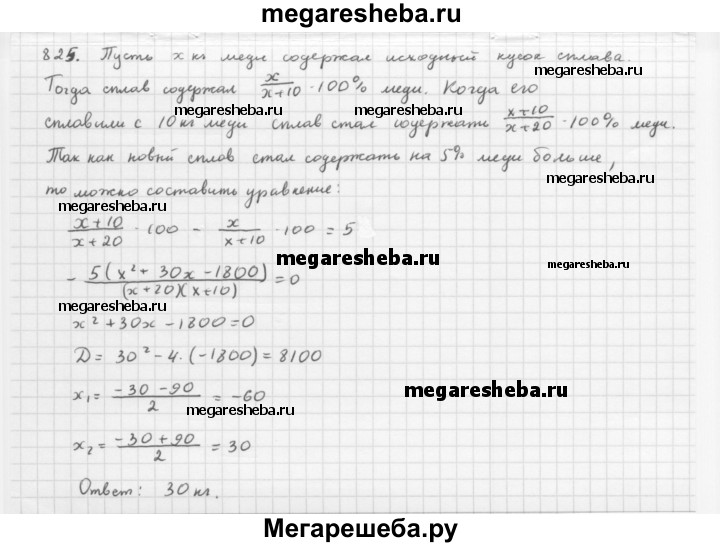 megaresheba.ru
825. Пусть x кг меди содержал исходный кусок сплава.
megaresheba.ru
Тогда сплав содержал x/(x+10) · 100% меди. Когда его
megaresheba.ru
megaresheba.ru
сплавили с 10 кг меди сплав стал содержать (x+10)/(x+20) · 100% меди.
Так как новый сплав стал содержать на 5% меди больше,
то можно составить уравнение:
megaresheba.ru
megaresheba.ru
(x+10)/(x+20) · 100 - x/(x+10) · 100 = 5
megaresheba.ru
megaresheba.ru
- 5(x² + 30x - 1800)/((x+20)(x+10)) = 0
megaresheba.ru
x² + 30x - 1800 = 0
D = 30² - 4·(-1800) = 8100
x₁ = (-30 - 90)/2 = -60
megaresheba.ru
megaresheba.ru
x₂ = (-30 + 90)/2 = 30
megaresheba.ru
Ответ: 30 кг.
Мегарешеба.ру